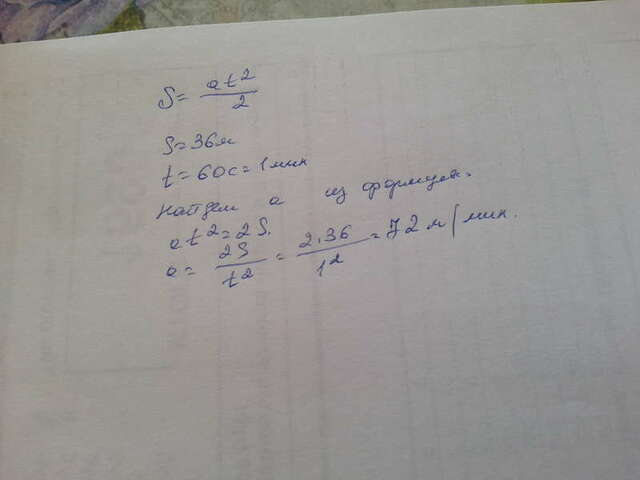 S = at²/2
S = 36м
t = 60с = 1 мин
Найдем a из формулы.
at² = 2S.
a = 2S/t² = 2·36/1² = 72 м/мин.